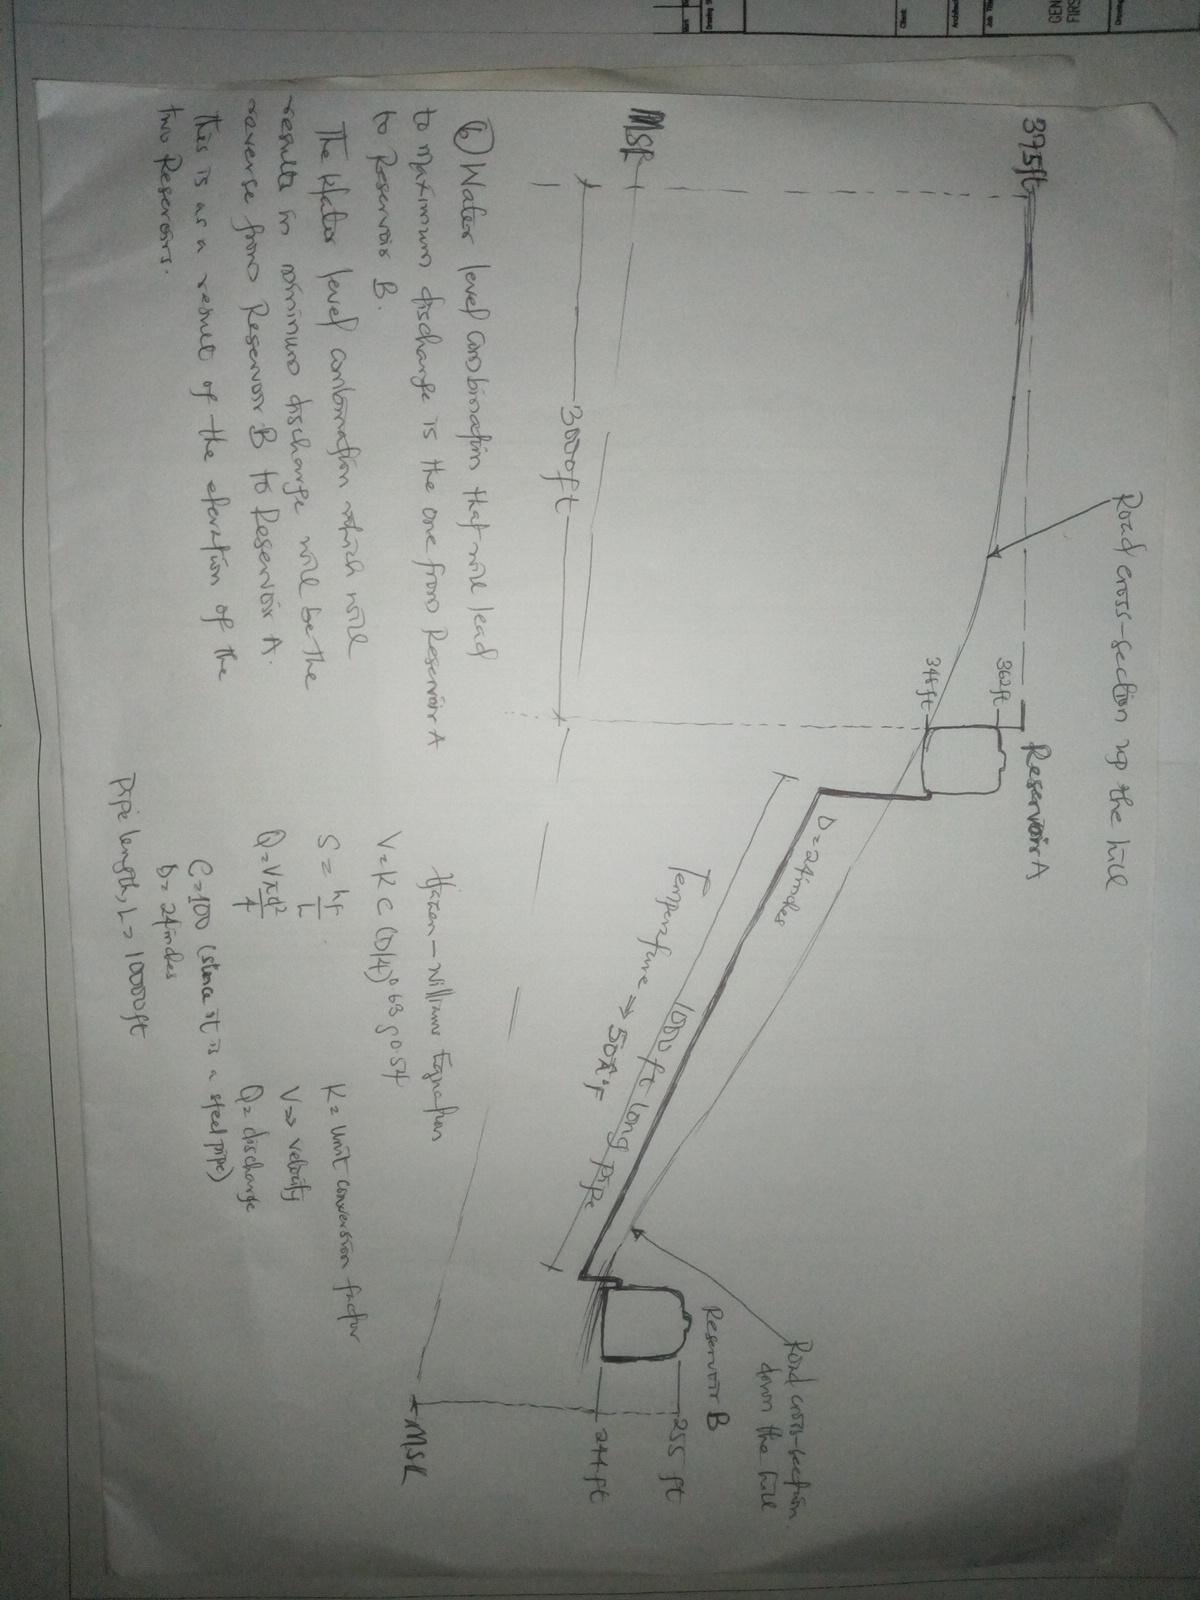 Road cross-section up the hill
375ft
Reservoir A
362ft
345ft
D=24inches
1000 ft long pipe
Temperature ⇒ 50 °F
Road cross-section
down the hill
Reservoir B
255 ft
244ft
MSL
3000ft
MSL
(b) Water level combination that will lead
to maximum discharge is the one from Reservoir A
to Reservoir B.
The Water level combination which will
results in minimum discharge will be the
reverse from Reservoir B to Reservoir A.
this is as a result of the elevation of the
two Reservoirs.
Hazen-Williams Equation
V=K C (D/4)^0.63 S^0.54
S = hf/L
Q=Vπd²/4
K = unit conversion factor
V⇒ velocity
Q= discharge
C=100 (since it is a steel pipe)
D= 24inches
Pipe length, L= 10000ft
GEN
FIRS